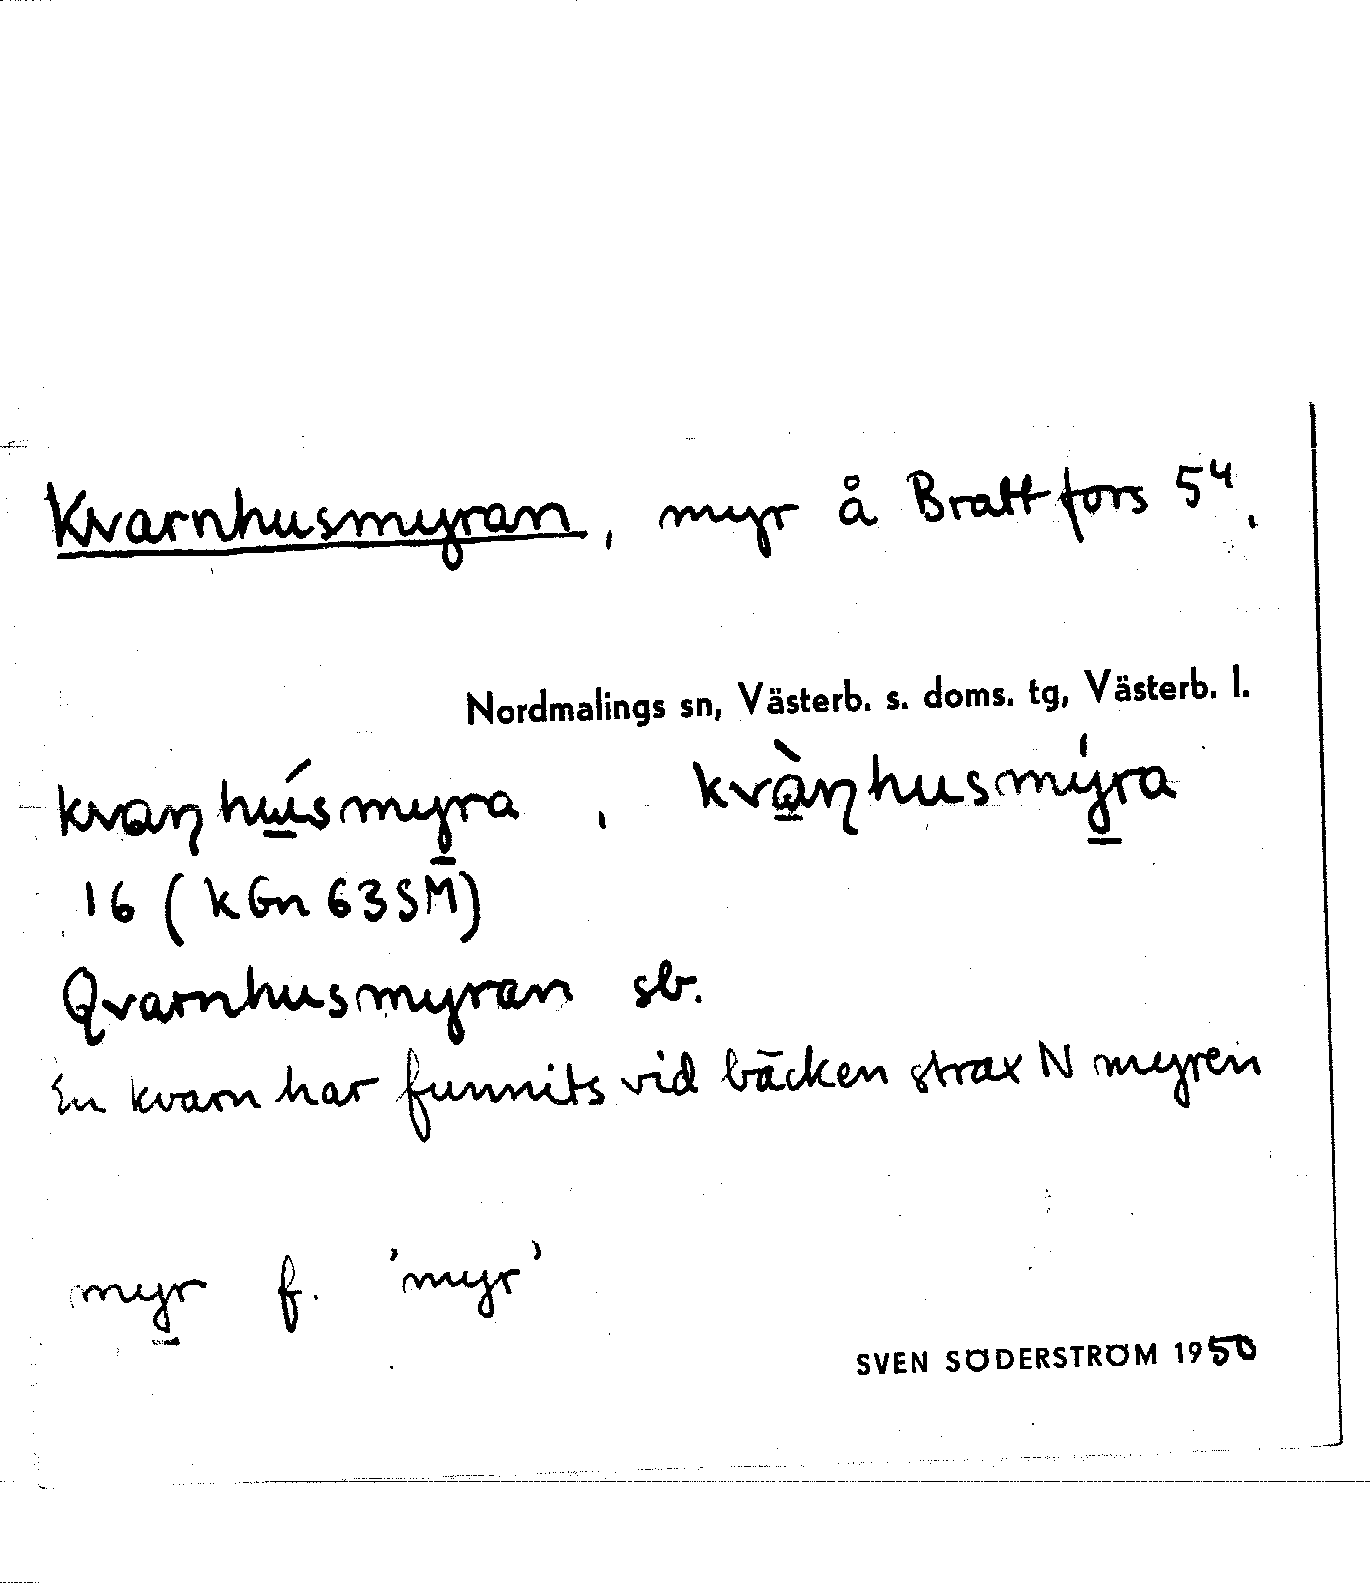 Kvarnhusmyran, myr å Brattfors 5⁴.
Nordmalings sn, Västerb. s. doms. tg, Västerb. l.
kvaɳhú̲smyra, kvà̲ɳhusmý̲ra
16 (kGn 63SM)
Qvarnhusmyran sb.
En kvarn har funnits vid bäcken strax N myren
my̲r f. 'myr'
SVEN SÖDERSTRÖM 1950